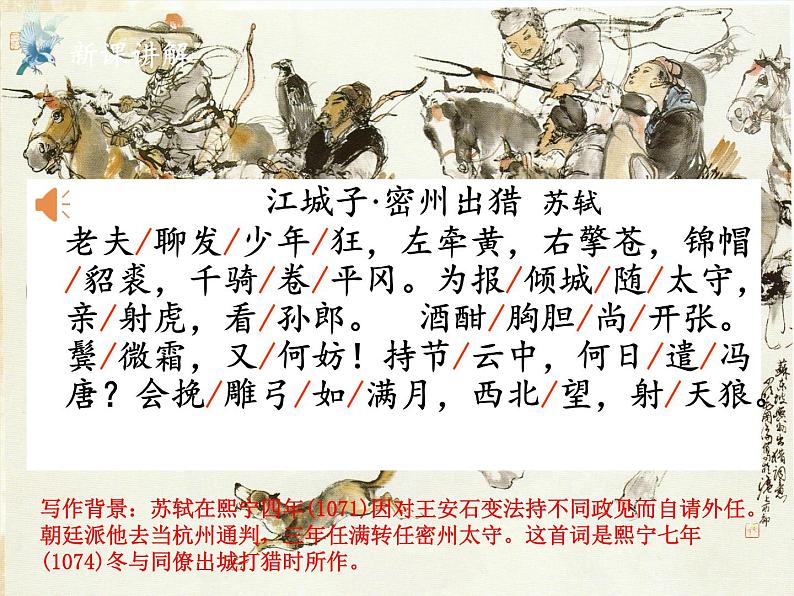 新课讲解
江城子·密州出猎 苏轼
老夫/聊发/少年/狂，左牵黄，右擎苍，锦帽
/貂裘，千骑/卷/平冈。为报/倾城/随/太守，
亲/射虎，看/孙郎。 酒酣/胸胆/尚/开张。
鬓/微霜，又/何妨！持节/云中，何日/遣/冯
唐？会挽/雕弓/如/满月，西北/望，射/天狼。
写作背景：苏轼在熙宁四年(1071)因对王安石变法持不同政见而自请外任。
朝廷派他去当杭州通判，三年任满转任密州太守。这首词是熙宁七年
(1074)冬与同僚出城打猎时所作。